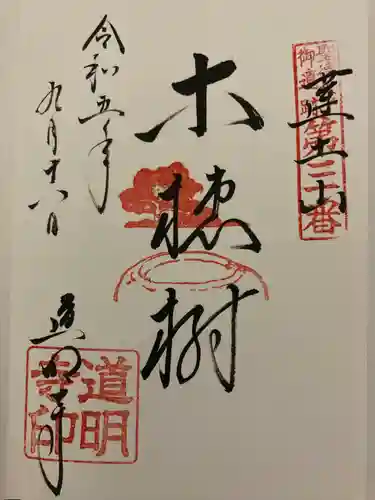 蓮土山
第三十番
木槵樹
令和五年
九月十八日
道明寺
道明
寺印